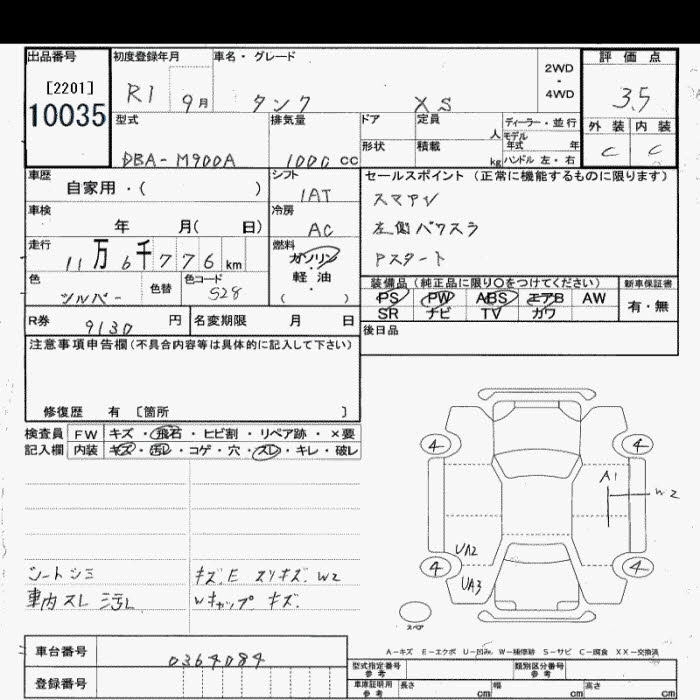 出品番号
[2201]
10035
初度登録年月
R1 9月
車名・グレード
タンク XS
2WD
・
4WD
評価点
3.5
外装 内装
C C
型式
DBA-M900A
排気量
1000 cc
ドア
定員
人
ディーラー・並行
モデル
年式 年
形状
積載
kg
ハンドル 左・右
車歴
自家用・( )
シフト
IAT
車検
年 月( 日)
冷房
AC
走行
11万6千776km
燃料
ガソリン
・
軽油
( )
色
シルバー
色替
色コード
S28
R券
9130 円
名変期限 月 日
セールスポイント (正常に機能するものに限ります)
スマアシ
左側パワスラ
Pスタート
装備品 (純正品に限り○をつけてください)
新車保証書
PS PW ABS エアB AW
SR ナビ TV カワ
有・無
後日品
注意事項申告欄(不具合内容等は具体的に記入して下さい)
修復歴 有 [箇所 ]
検査員 FW キズ・飛石・ヒビ割・リペア跡・×要
記入欄 内装 キズ・汚レ・コゲ・穴・スレ・キレ・破レ
シートシミ
車内スレ 汚レ
キズ.E スリキズ.W2
Wキャップ キズ.
4 4
A1
W2
UA2
4 4
UA3
スペア
A-キズ E-エクボ U-凹み W-補修跡 S-サビ C-腐食 XX-交換済
車台番号
0364084
登録番号
型式指定番号
参考
類別区分番号
参考
車庫証明用
参考
長さ cm
幅 cm
高さ cm